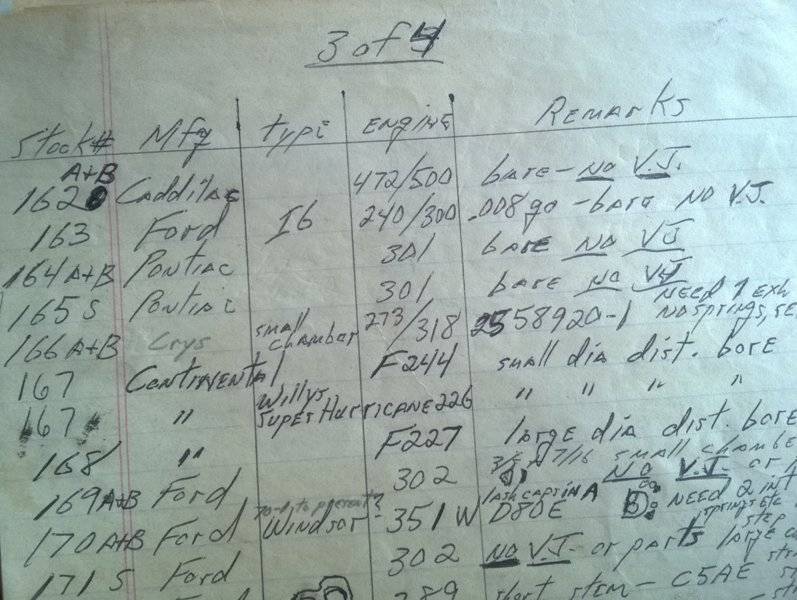 3 of 4
Stock# Mfg type ENGINE REMARKS
A+B
162 Caddilac 472/500 bare - NO V.J.
163 Ford I6 240/300 .008 go - bare NO V.J.
164 A+B Pontiac 301 bare NO VJ
165 S Pontiac 301 bare NO VJ
166 A+B Crys small chamber 273/318 2558920-1 NEED 1 exh
NO springs,
167 Continental F244 small dia dist. bore
167 " Willys Super Hurricane 226 " " " "
168 " F227 large dia dist. bore
169 A+B Ford 302 7/16 small chamber
NO V.J. or
170 A+B Ford Windsor - 351 W D80E B: NEED 2 int
springs etc
171 S Ford 302 NO V.J. or parts large
289 short stem - C5AE